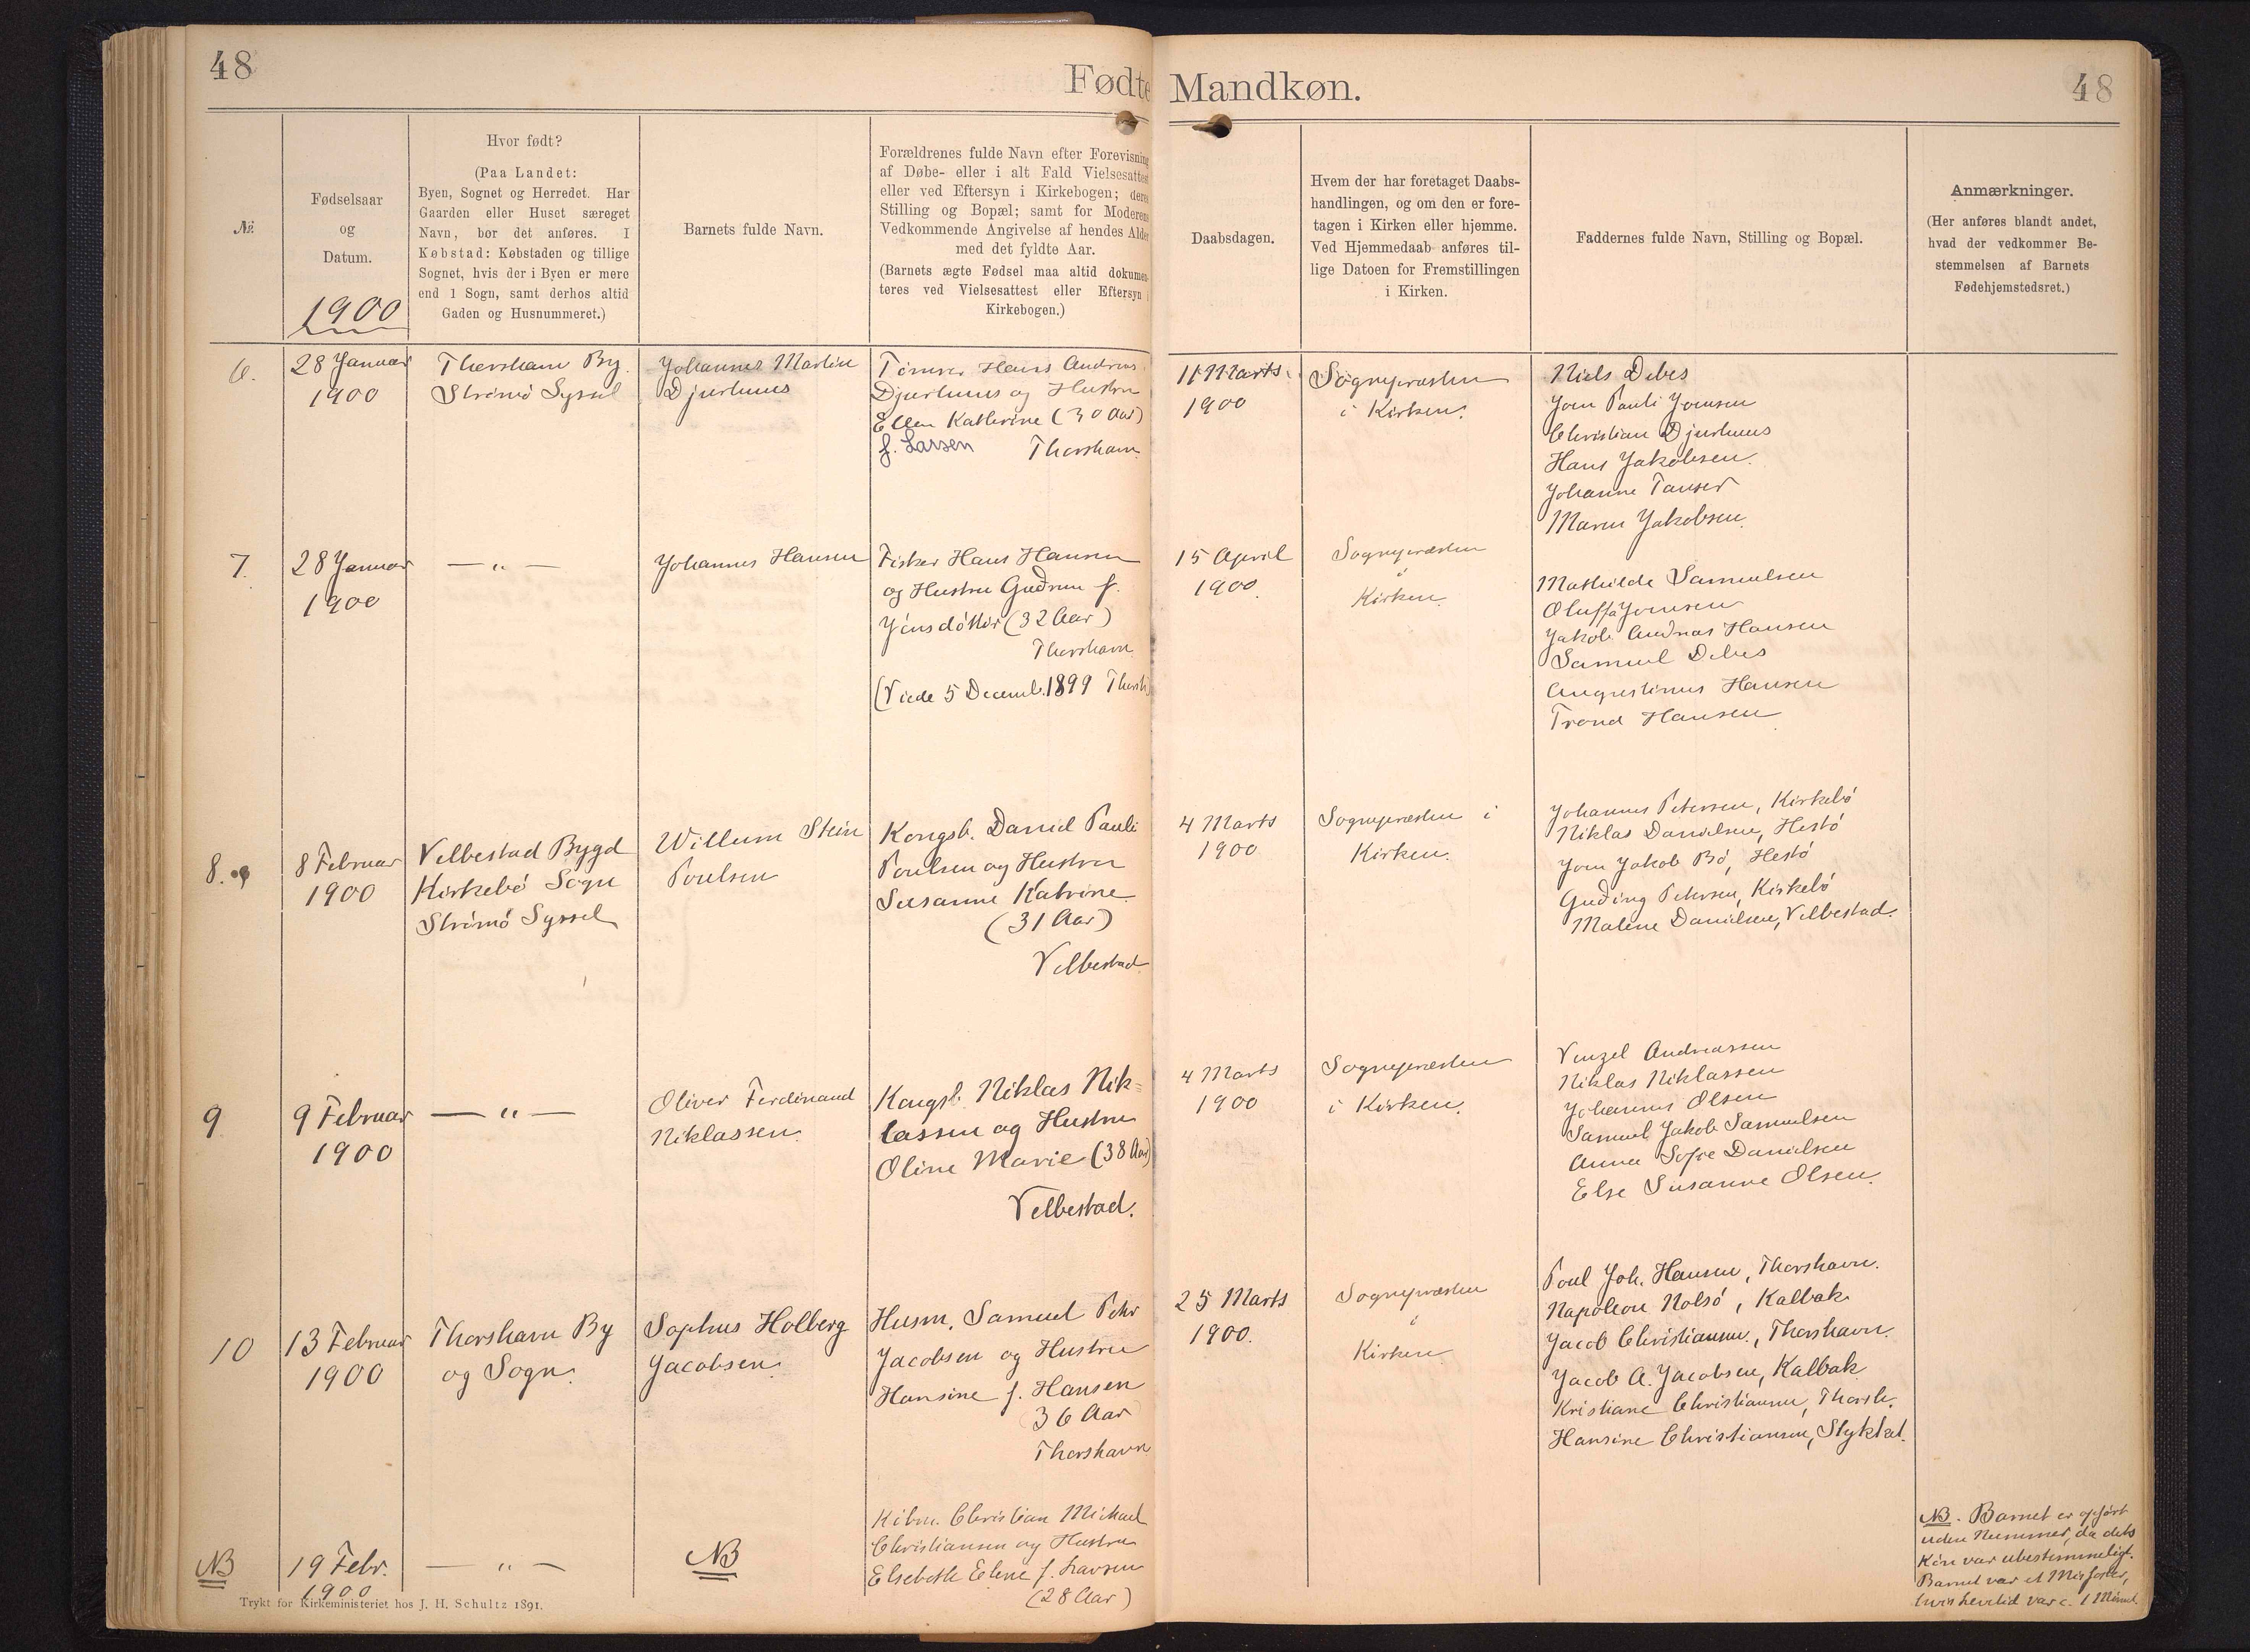 48
Fødte
Mandkøn.
48
№
Fødselsaar
og
Datum.
1900
Hvor født?
(Paa Landet:
Byen, Sognet og Herredet. Har
Gaarden eller Huset særeget
Navn, bør det anføres. I
Købstad: Købstaden og tillige
Sognet, hvis der i Byen er mere
end 1 Sogn, samt derhos altid
Gaden og Husnummeret.)
Barnets fulde Navn.
Forældrenes fulde Navn efter Forevisning
af Døbe- eller i alt Fald Vielsesattest
eller ved Eftersyn i Kirkebogen; deres
Stilling og Bopæl; samt for Moderens
Vedkommende Angivelse af hendes Alder
med det fyldte Aar.
(Barnets ægte Fødsel maa altid dokumen-
teres ved Vielsesattest eller Eftersyn i
Kirkebogen.)
Daabsdagen.
Hvem der har foretaget Daabs-
handlingen, og om den er fore-
tagen i Kirken eller hjemme.
Ved Hjemmedaab anføres til-
lige Datoen for Fremstillingen
i Kirken.
Faddernes fulde Navn, Stilling og Bopæl.
Anmærkninger.
(Her anføres blandt andet,
hvad der vedkommer Be-
stemmelsen af Barnets
Fødehjemstedsret.)
6.
28 Januar
1900
Thorshavn By.
Strømø Syssel
Johannes Martin
Djurhuus
Tømrer Hans Andreas
Djurhuus og Hustru
Ellen Kathrine (30 Aar)
f. Larsen Thorshavn.
11 Marts
1900
Sognepræsten
i Kirken.
Niels Debes
Joen Pauli Joensen
Christian Djurhuus
Hans Jakobsen.
Johanne
Maren Jakobsen.
7.
28 Januar
1900
— " —
Johannes Hansen
Fisker Hans Hansen
og Hustru Guðrun f.
Jónsdóttir (32 Aar)
Thorshavn.
(Viede 5 Decemb. 1899 Thorsh)
15 April
1900.
Sognepræsten
i
Kirken.
Mathilde Samuelsen
Oluffa Joensen
Jakob Andreas Hansen
Samuel Debes
Augustinus Hansen
Trond Hansen
8.
8 Februar
1900
Velbestad Bygd
Kirkebø Sogn
Strømø Syssel
Willum Stein
Poulsen
Kongsb. Daniel Pauli
Poulsen og Hustru
Susanne Katrine
(31 Aar)
Velbestad.
4 Marts
1900
Sognepræsten i
Kirken.
Johannes Petersen, Kirkebø
Niklas Danielsen, Hestø
Joen Jakob Bø, Hestø
Petersen, Kirkebø
Malene Danielsen, Velbestad.
9
9 Februar
1900
— " —
Oliver Ferdinand
Niklassen.
Kongsb. Niklas Nik=
lassen og Hustru
Oline Marie (38 Aar)
Velbestad.
4 Marts
1900
Sognepræsten
i Kirken.
Venzel Andreassen
Niklas Niklassen
Johannes Olsen
Samuel Jakob Samuelsen
Anna Sofie Danielsen
Else Susanne Olsen.
10
13 Februar
1900
Thorshavn By
og Sogn.
Sophus Holberg
Jacobsen.
Husm. Samuel Petr
Jacobsen og Hustru
Hansine f. Hansen
36 Aar
Thorshavn
25 Marts
1900.
Sognepræsten
i
Kirken
Poul Joh. Hansen, Thorshavn.
Napoleon Nolsø, Kalbak
Jacob Christiansen, Thorshavn.
Jacob A. Jacobsen, Kalbak
Kristiane Christiansen, Thorsh.
Hansine Christiansen,
NB
19 Febr.
1900
— " —
NB
Købm. Christian Michael
Christiansen og Hustru
Elsebeth Elene f. Larsen
(28 Aar)
NB. Barnet er opført
uden Nummer, da dets
Køn var ubestemmeligt.
Barnet var et Misfoster,
hvis Levetid var c. 1 Minut.
Trykt for Kirkeministeriet hos J. H. Schultz 1891.